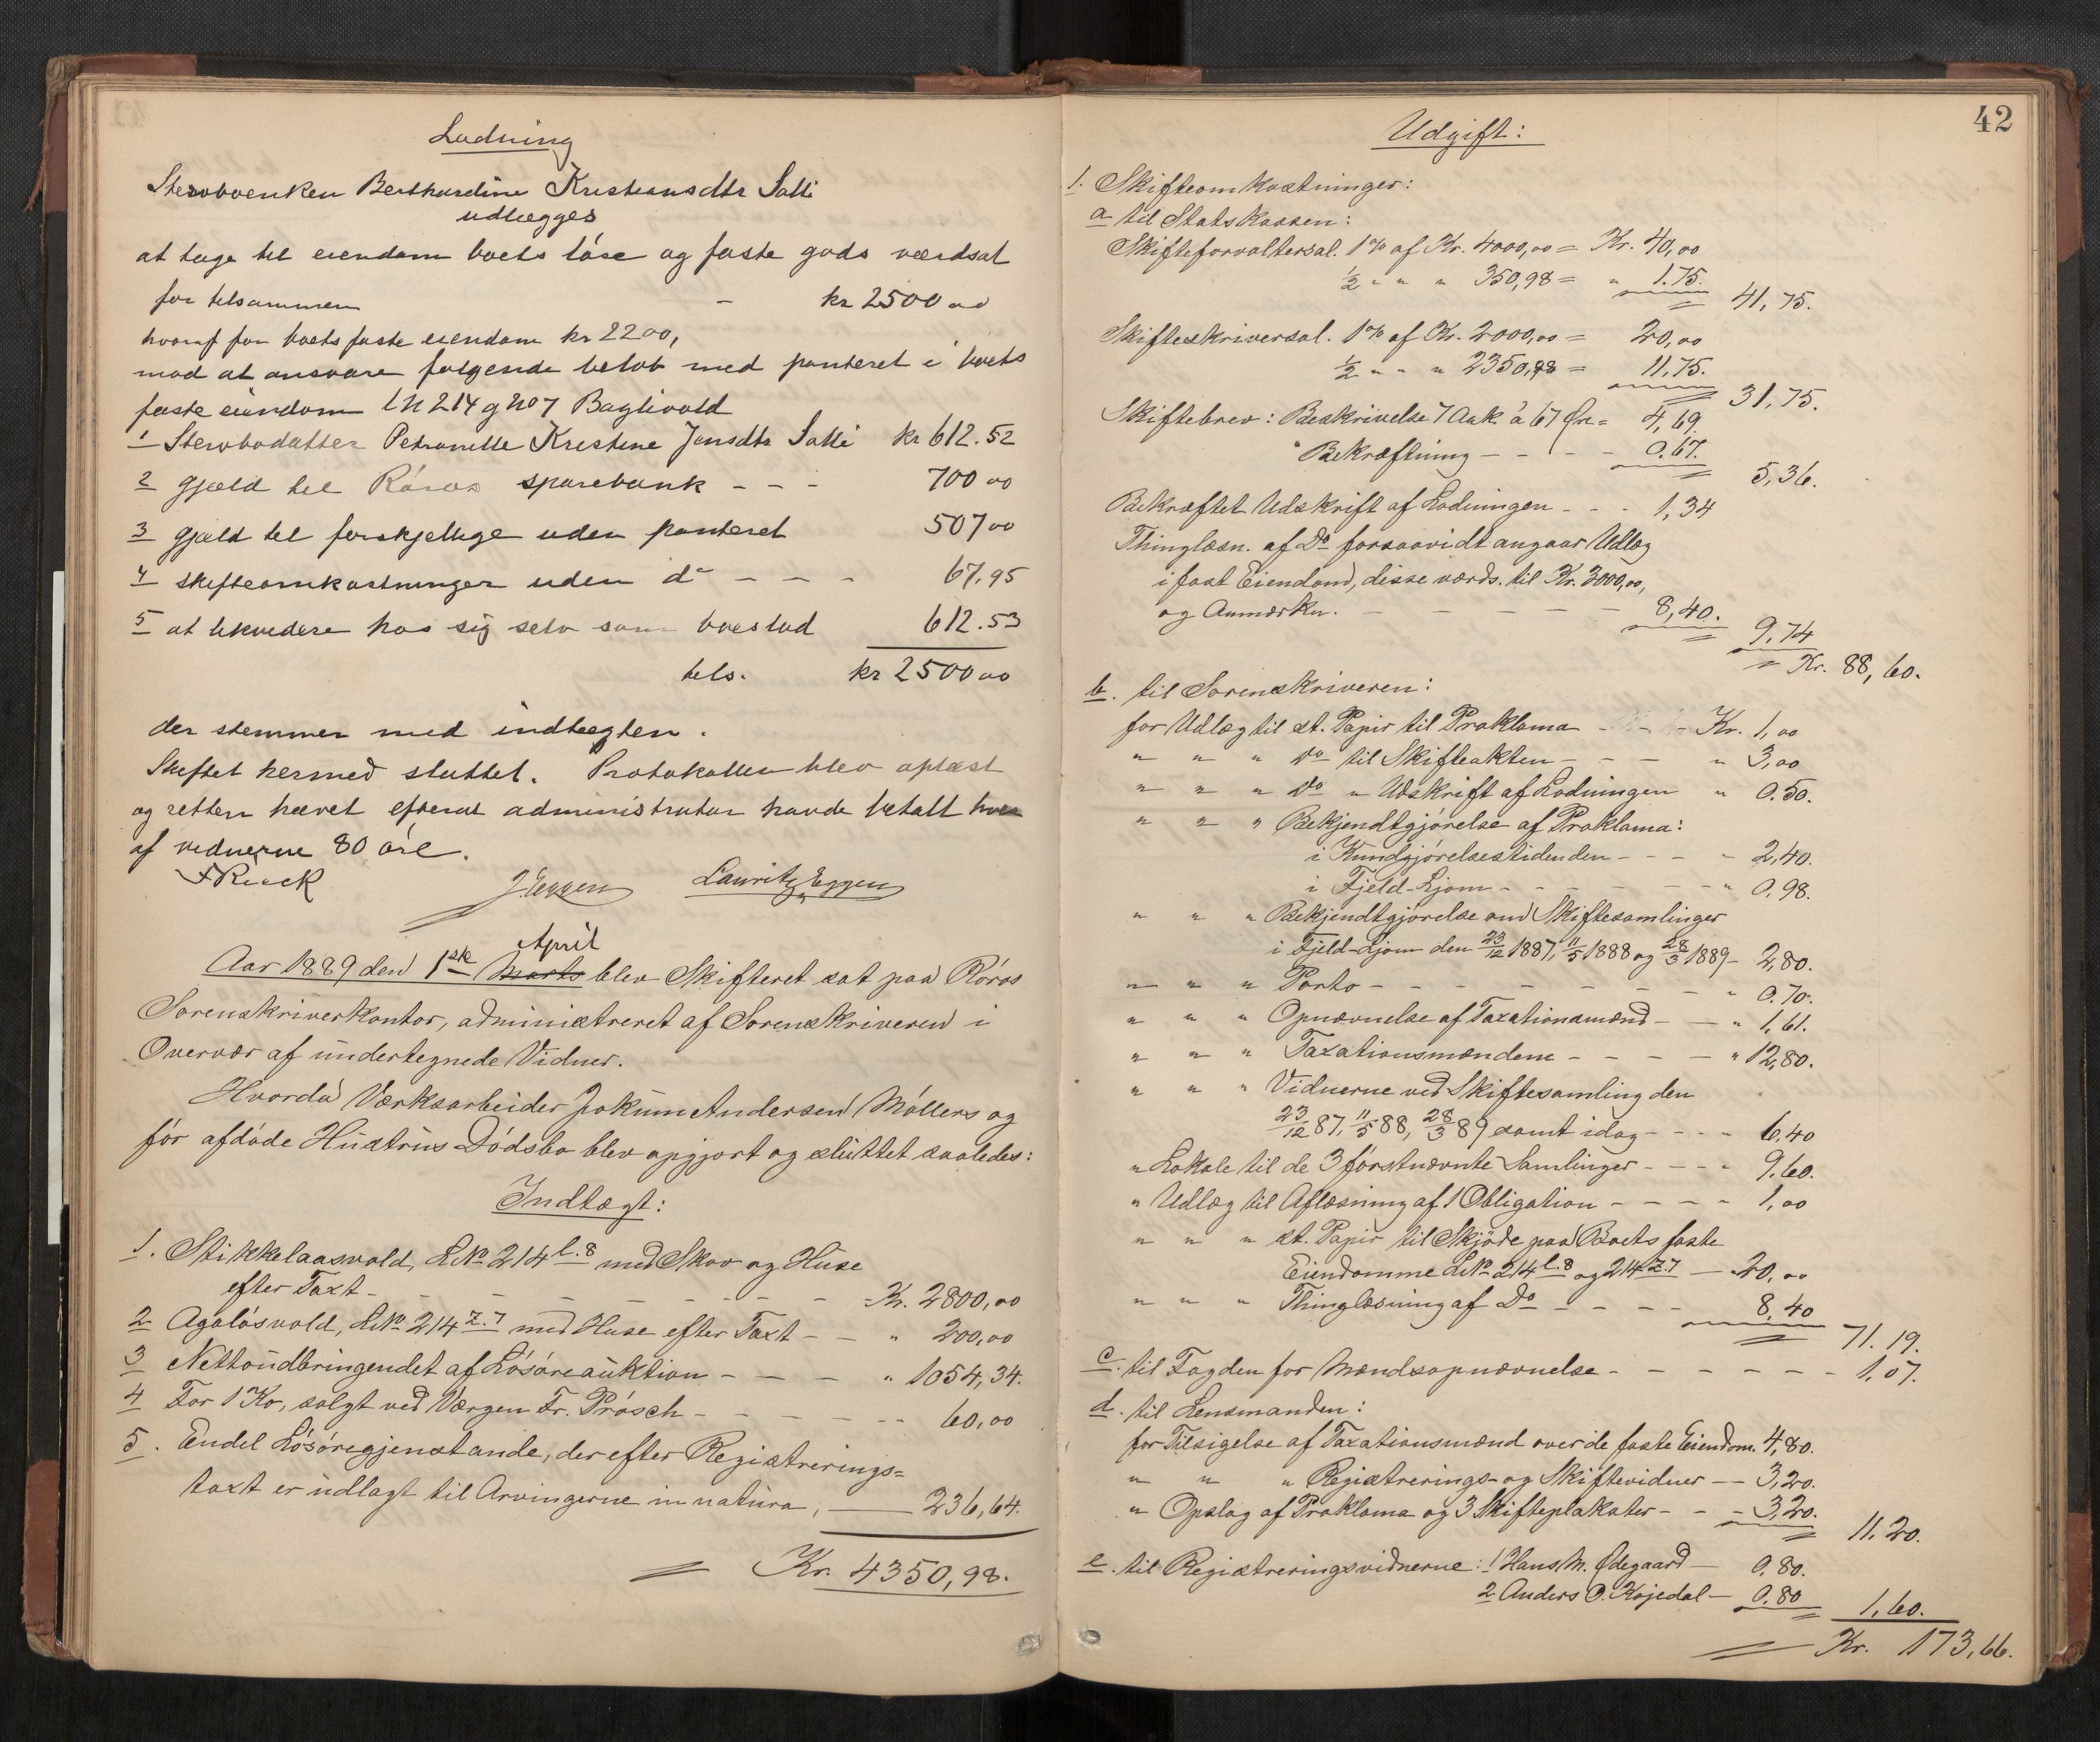 Lodning
Stervboenken Bernhardine Kristiansdtr Satli
udlægges
at tage til eiendom boets løse og faste gods værdsat
for tilsammen - kr 2500 00
hvoraf for boets faste eiendom kr 2200,
mod at ansvare følgende beløb med panteret i boets
faste eiendom lN 214 g No 7 Baglivold
1 Stervbodatter Petronille Kristine Jensdtr Satli kr 612.52
2 gjæld til Røros sparebank - - - 700 00
3 gjæld til forskjellige uden panteret 507 00
4 skifteomkostninger uden do - - - 67,95
5 at likvidere hos sig selv som boeslod 612.53
tils. kr 2500 00
der stemmer med indtægten.
Skiftet hermed sluttet. Protokollen blev oplæst
og retten hævet efterat administrator havde betalt hver
af vidnerne 80 øre.
J. Eggen Lauritz Eggen
April
Aar 1889 den 1ste Marts blev Skifteret sat paa Røros
Sorenskriverkontor, administreret af Sorenskriveren i
Overvær af undertegnede Vidner.
Hvorda Værksarbeider Jokum Andersen Møllers og
før afdøde Hustrus Dødsbo blev opgjort og sluttet saaledes:
Indtægt:
1. Stikkelaasvold, LNo 214 l.8 med Skov og Huse
efter Taxt - - - - - - - - Kr. 2800,00
2 Agaløsvold, LNo 214 z.7 med Huse efter Taxt - - " 200,00
3 Nettoudbringendet af Løsøreauktion - - - " 1054,34.
4 For 1 Ko, solgt ved Værgen Fr. Prøsch - - - - - - 60,00
5. Endel Løsøregjenstande, der efter Registrerings=
taxt er udlagt til Arvingerne in natura, — 236,64.
= Kr. 4350,98.
42
Udgift:
1. Skifteomkostninger:
a til Statskassen:
Skifteforvaltersal. 1% af Kr. 4000,00 = Kr. 40,00
½ " " " 350,98 = " 1.75.
= 41,75.
Skifteskriversal. 1% af Kr. 2000,00 = 20,00
½ " " " 2350,98 = 11,75.
= 31,75.
Skiftebrev: Beskrivelse 7 Ark. à 67 Øre = 4,69.
" Bekræftning - - - - 0.67.
= 5,36.
Bekræftet Udskrift af Lodningen - - - 1,34
Thinglæsn. af Do forsaavidt angaar Udlæg
i fast Eiendom, disse værds. til Kr. 3000,00,
og Anmærkn. - - - - - 8,40.
= 9,74
= Kr. 88,60.
b. til Sorenskriveren:
for Udlæg til st. Papir til Proklama - - - Kr. 1,00
" " " do til Skifteakten - - - " 3,00
" " " do " Udskrift af Lodningen " 0.50.
" " " Bekjendtgjørelse af Proklama:
i Kundgjørelsestidenden - - - - 2,40.
i Fjeld-Ljom - - - - - - " 0,98.
" " " Bekjendtgjørelse om Skiftesamlinger
i Fjeld-Ljom den 23/12 1887, 11/5 1888 og 28/3 1889 - 2,80.
" " " Porto - - - - - - - " 0.70.
" " " Opnævnelse af Taxationsmænd - - " 1,61.
" " " Taxationsmændene - - - - " 12,80.
" " " Vidnerne ved Skiftesamling den
23/12 87, 11/5 88, 28/3 89 samt idag - - - - 6,40
" Lokale til de 3 førstnævnte Samlinger - - - " 9.60.
" Udlæg til Aflæsning af 1 Obligation - - - - " 1,00
" " " st. Papir til Skjøde paa Boets faste
Eiendomme LNo 214 l.8 og 214 z.7 - 20,00
" " " Thinglæsning af Do - - - - 8,40
= 71.19.
c. til Fogden for Mandsopnævnelse - - - - - - 1,07.
d. til Lensmanden:
for Tilsigelse af Taxationsmænd over de faste Eiendom. 4,80.
" " " Registrerings- og Skiftevidner - - 3,20.
" Opslag af Proklama og 3 Skifteplakater - - - 3,20.
= 11.20.
e. til Registreringsvidnerne: 1 Hans M. Ødegaard - 0.80.
2 Anders O. Kojedal - 0.80
= 1,60.
= Kr. 173,66.